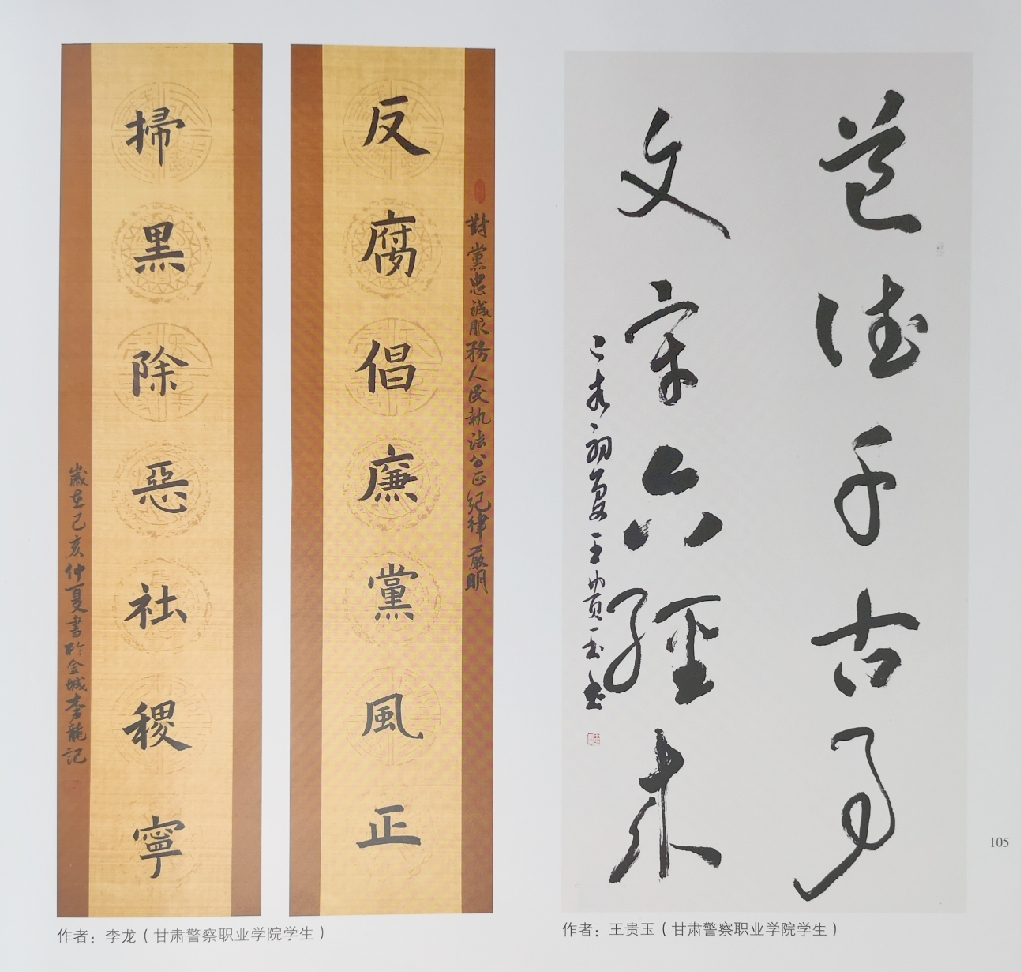 對黨忠誠服務人民執法公正紀律嚴明
反腐倡廉黨風正
掃黑除惡社稷寧
歲在己亥仲夏書於金城李龍記
作者：李龙（甘肃警察职业学院学生）
道德千古事
文章六經来
己亥初夏王貴玉書
作者：王贵玉（甘肃警察职业学院学生）
105